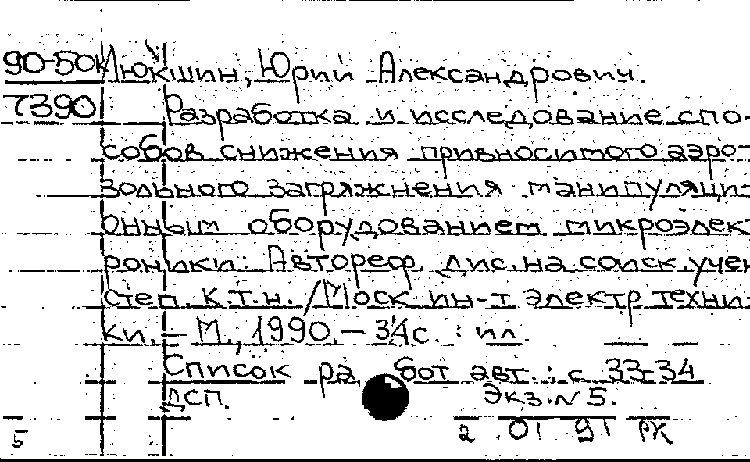 90-50к Люкшин, Юрий Александрович.
7390 Разработка и исследование спо-
собов снижения привносимого аэро-
зольного загряжнения манипуляци-
онным оборудованием микроэлек
роники: Автореф. дис. на соиск. учен
степ. к.т.н. / Моск. ин-т электр. техни
ки. – М., 1990. – 34с. : ил.
Список ра бот авт.: с 33-34
ДСП. Экз. N 5.
5 2 01 91 РК